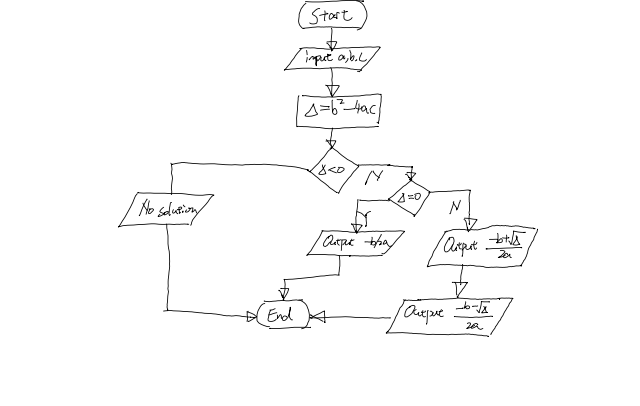 Start
input a,b,c
Δ=b²-4ac
Δ<0
N
Δ=0
Y
N
No solution
Output -b/2a
Output (-b+√Δ)/2a
Output (-b-√Δ)/2a
End